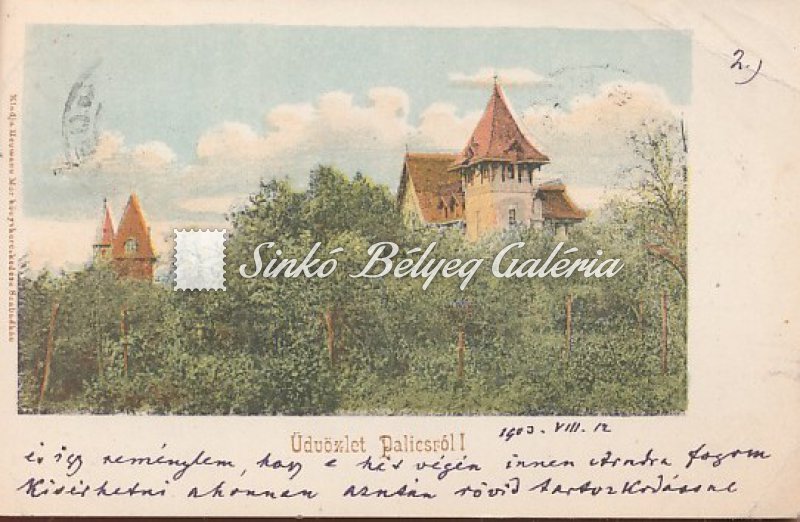 2.)
Kiadja Heumann Mór könyvkereskedése Szabadkán
Sinkó Bélyeg Galéria
Üdvözlet Palicsról!
1903. VIII. 12
és igy reménylem, hogy e hét végén innen Aradra fogom
kisérhetni ahonnan azután rövid tartozkodással